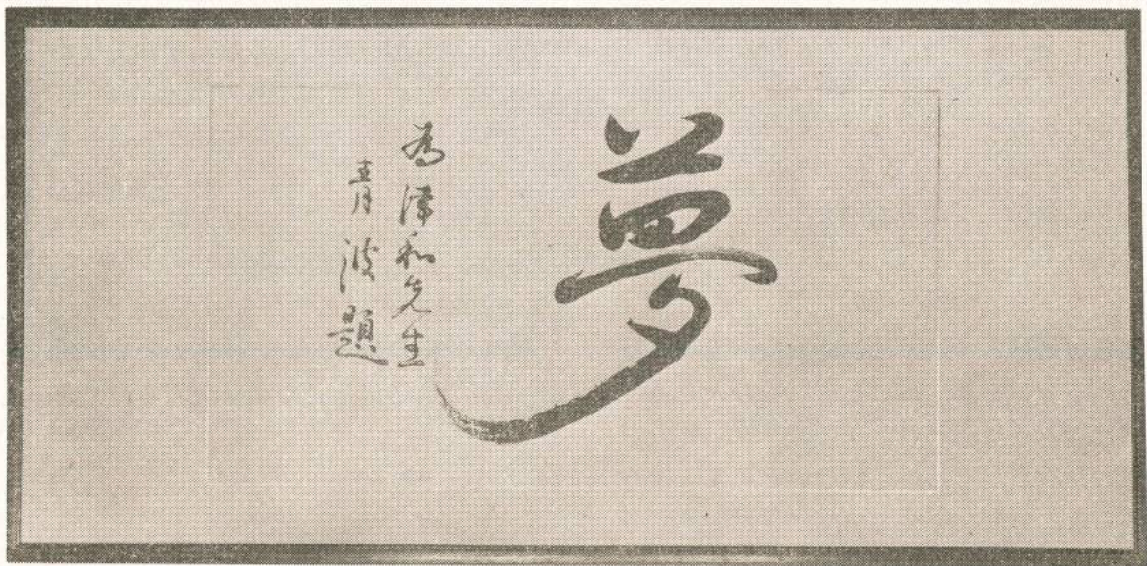 夢
為澤和先生
青波題